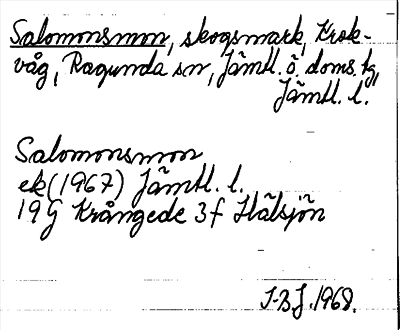 Salomonsmon, skogsmark, Krok-
våg, Ragunda sn, Jämtl. ö. doms. tg,
Jämtl. l.
Salomonsmon
ek (1967) Jämtl. l.
19 G Krångede 3 f Hälsjön
J-BJ. 1968.